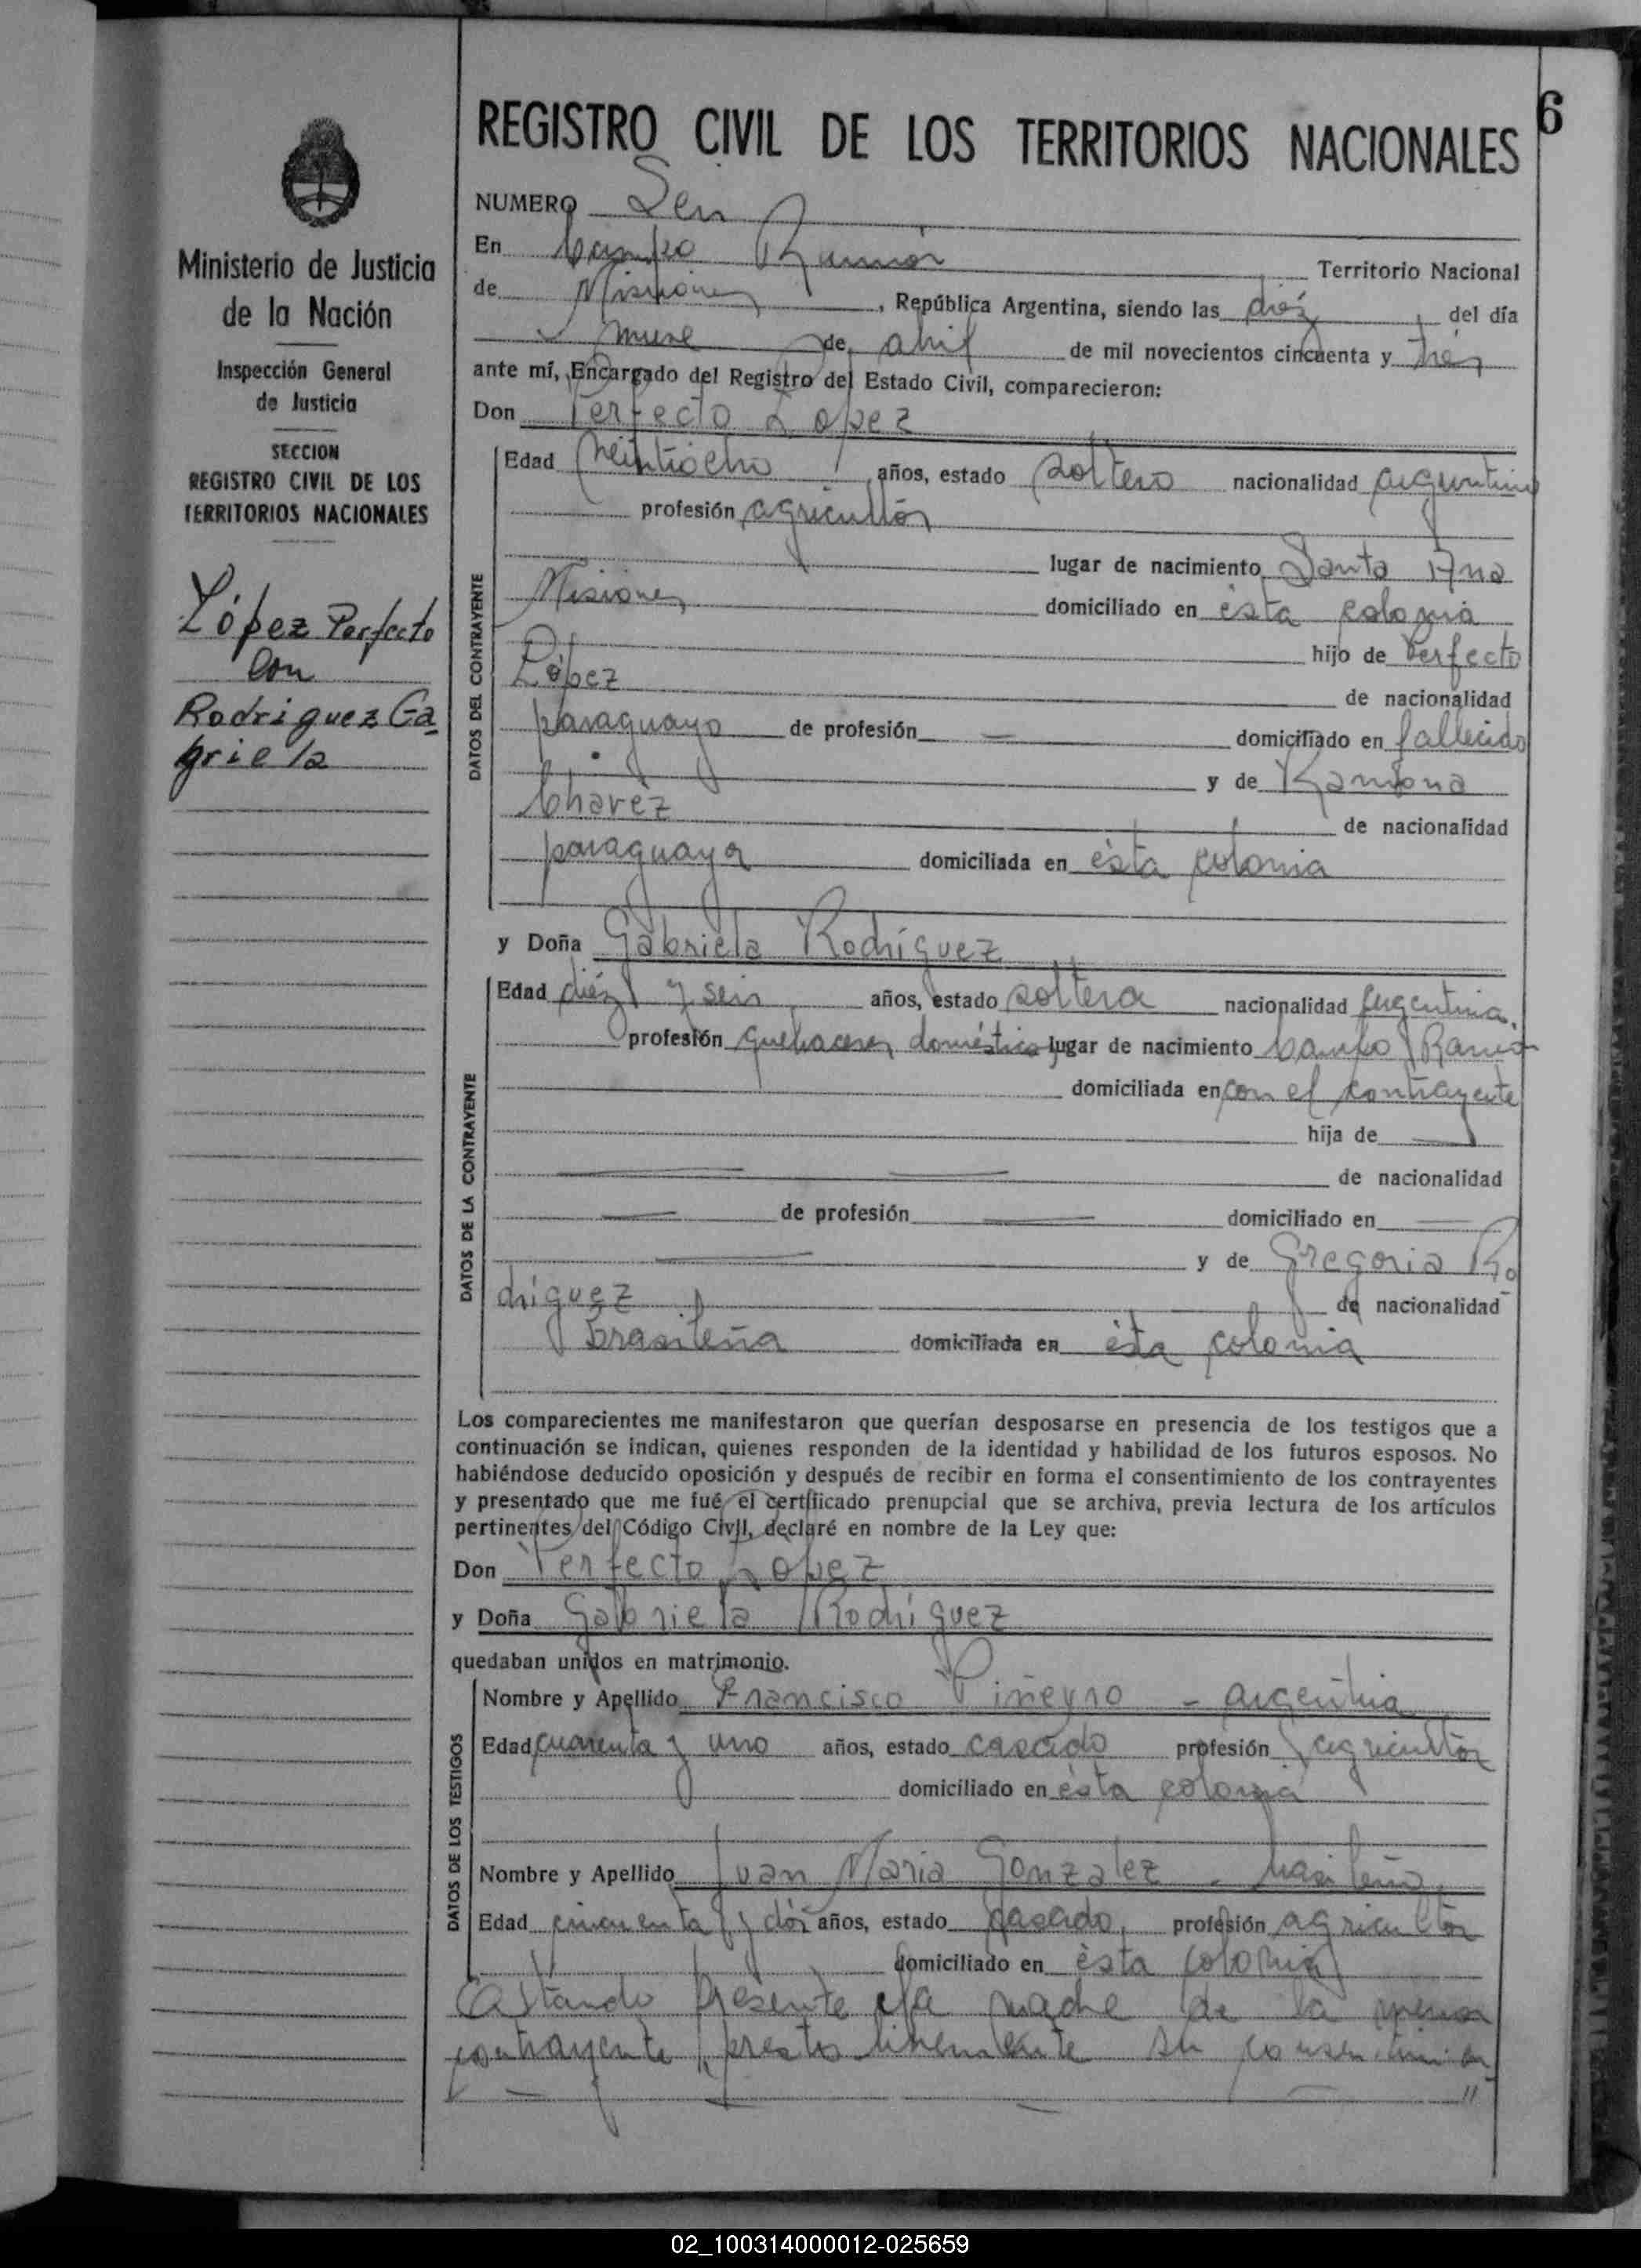 6
REGISTRO CIVIL DE LOS TERRITORIOS NACIONALES
Ministerio de Justicia
de la Nación
Inspección General
de Justicia
SECCION
REGISTRO CIVIL DE LOS
TERRITORIOS NACIONALES
López Perfecto
con
Rodriguez Ga
briela
NUMERO Seis
En Campo Ramón Territorio Nacional
de Misiones, República Argentina, siendo las diéz del día
nueve de abril de mil novecientos cincuenta y tres
ante mí, Encargado del Registro del Estado Civil, comparecieron:
Don Perfecto Lopez
DATOS DEL CONTRAYENTE
Edad veintiocho años, estado soltero nacionalidad argentino
profesión agricultor
lugar de nacimiento Santa Ana
Misiones domiciliado en ésta colonia
hijo de Perfecto
López de nacionalidad
paraguayo de profesión — domiciliado en fallecido
y de Ramona
Chavez de nacionalidad
paraguaya domiciliada en ésta colonia
y Doña Gabriela Rodríguez
DATOS DE LA CONTRAYENTE
Edad diéz y seis años, estado soltera nacionalidad argentina.
profesión quehaceres domésticos lugar de nacimiento Campo Ramón
domiciliada en con el contrayente
hija de —
— — de nacionalidad
— de profesión — domiciliado en —
— y de Gregoria Ro
driguez de nacionalidad
brasileña domiciliada en ésta colonia
Los comparecientes me manifestaron que querían desposarse en presencia de los testigos que a
continuación se indican, quienes responden de la identidad y habilidad de los futuros esposos. No
habiéndose deducido oposición y después de recibir en forma el consentimiento de los contrayentes
y presentado que me fué el certificado prenupcial que se archiva, previa lectura de los artículos
pertinentes del Código Civil, declaré en nombre de la Ley que:
Don Perfecto Lopez
y Doña Gabriela Rodríguez
quedaban unidos en matrimonio.
DATOS DE LOS TESTIGOS
Nombre y Apellido Francisco Piñeyro - argentino
Edad cuarenta y uno años, estado casado profesión agricultor
domiciliado en ésta colonia
Nombre y Apellido Juan Maria Gonzalez - brasileño
Edad cincuenta y dós años, estado casado, profesión agricultor
domiciliado en ésta colonia
Estando presente la madre de la menor
contrayente, prestó libremente su consentimien
— — — — "
02_100314000012-025659